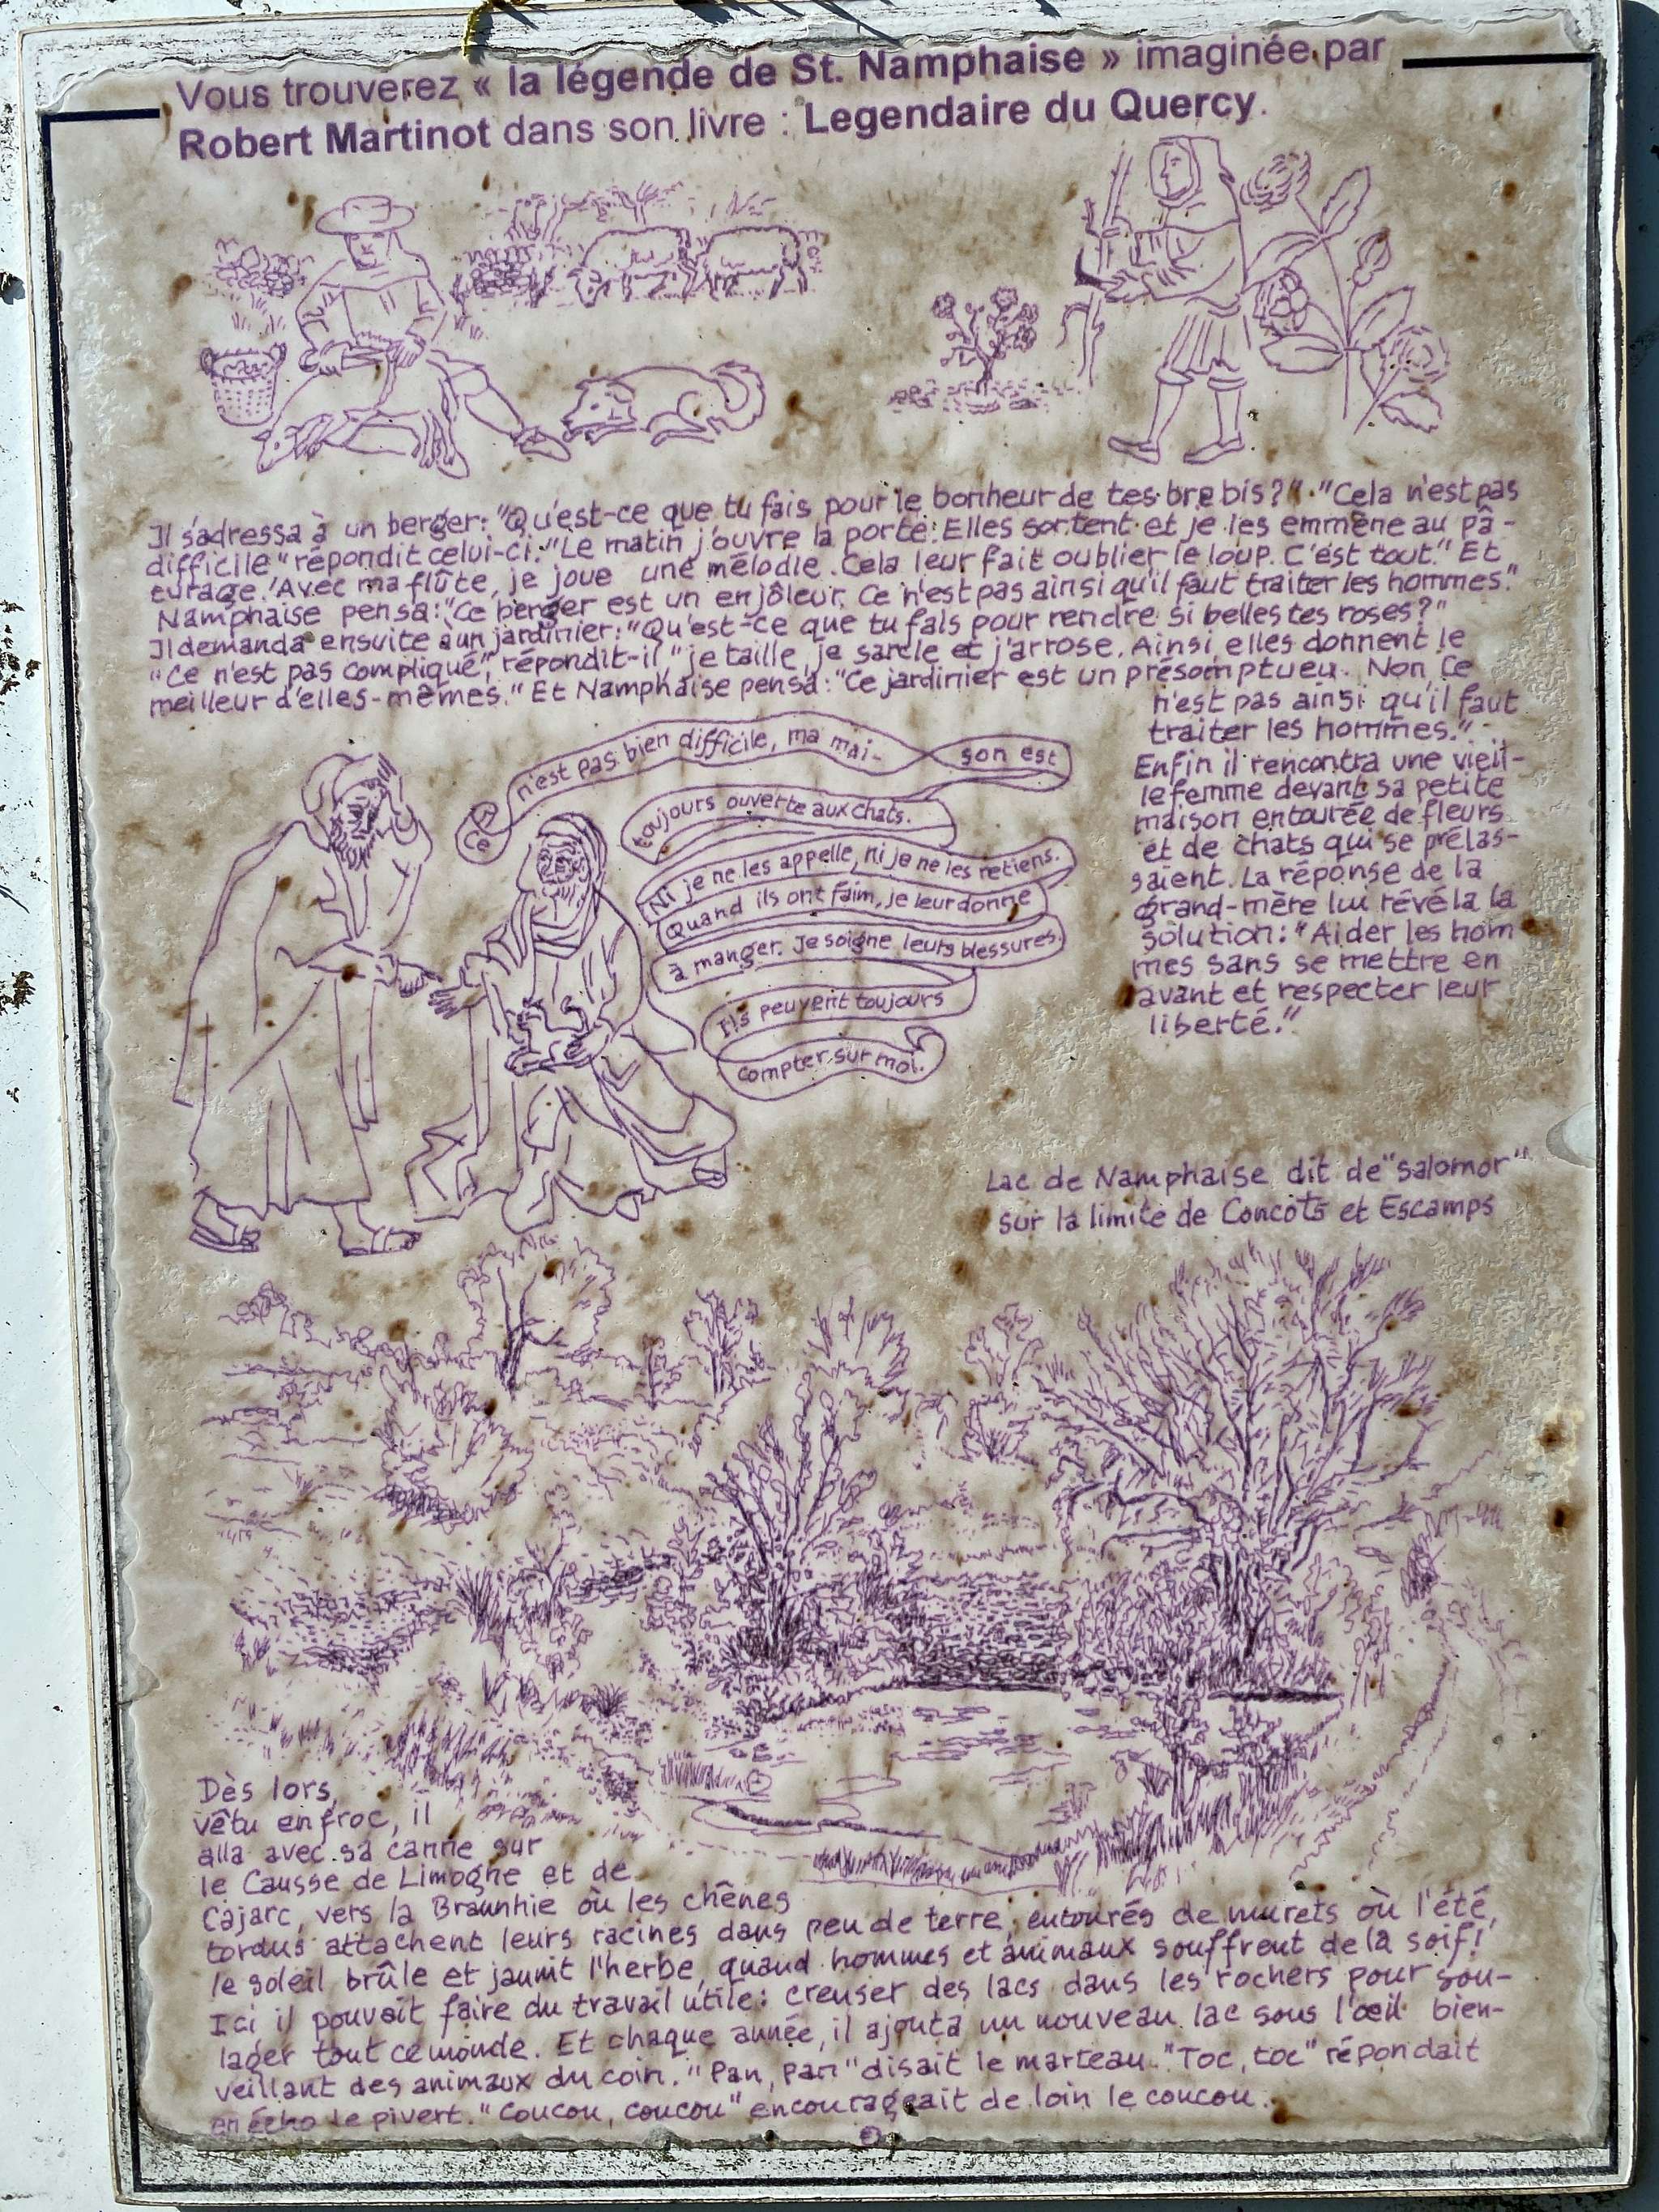 Vous trouverez « la légende de St. Namphaise » imaginée par
Robert Martinot dans son livre : Legendaire du Quercy.
Il s'adressa à un berger: "Qu'est-ce que tu fais pour le bonheur de tes brebis?" "Cela n'est pas
difficile" répondit celui-ci. "Le matin j'ouvre la porte: Elles sortent et je les emmène au pâ-
turage. Avec ma flûte, je joue une mélodie. Cela leur fait oublier le loup. C'est tout." Et
Namphaise pensa: "Ce berger est un enjôleur. Ce n'est pas ainsi qu'il faut traiter les hommes."
Il demanda ensuite à un jardinier: "Qu'est-ce que tu fais pour rendre si belles tes roses?"
"Ce n'est pas compliqué", répondit-il, "je taille, je sarcle et j'arrose. Ainsi elles donnent le
meilleur d'elles-mêmes." Et Namphaise pensa: "Ce jardinier est un présomptueu. Non, Ce
n'est pas ainsi qu'il faut
traiter les hommes."
Enfin il rencontra une vieil-
le femme devant sa petite
maison entourée de fleurs
et de chats qui se prélas-
saient. La réponse de la
grand-mère lui révéla la
solution: "Aider les hom
mes sans se mettre en
avant et respecter leur
liberté."
Ce n'est pas bien difficile, ma mai-
son est
toujours ouverte aux chats.
Ni je ne les appelle, ni je ne les retiens.
Quand ils ont faim, je leur donne
à manger. Je soigne leurs blessures.
Ils peuvent toujours
compter sur moi.
Lac de Namphaise dit de "salomor"
sur la limite de Concots et Escamps
Dès lors,
vêtu en froc, il
alla avec sa canne sur
le Causse de Limogne et de
Cajarc, vers la Braunhie où les chênes
tordus attachent leurs racines dans peu de terre, entourés de murets où l'été,
le soleil brûle et jaunit l'herbe, quand hommes et animaux souffrent de la soif!
Ici il pouvait faire du travail utile: creuser des lacs dans les rochers pour sou-
lager tout ce monde. Et chaque année, il ajouta un nouveau lac sous l'œil bien-
veillant des animaux du coin. "Pan, Pan" disait le marteau. "Toc, toc" répondait
en écho le pivert. "Coucou, coucou" encourageait de loin le coucou.